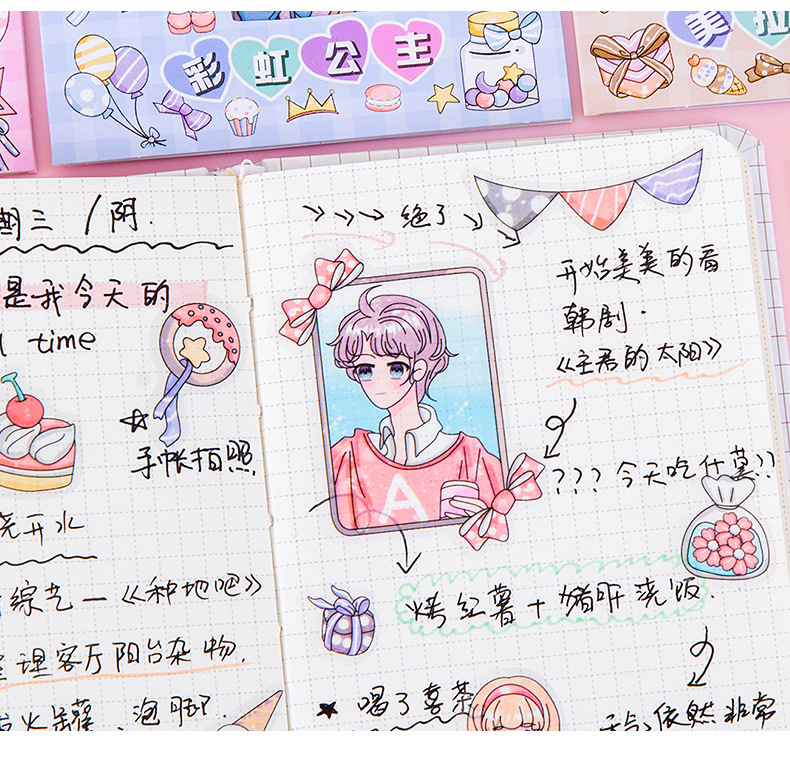 彩虹公主
美拉
期三 / 阴.
是我今天的
time
手帐拍照
烧开水
综艺—《种地吧》
理客厅阳台杂物.
火罐、泡脚.
绝了
开始美美的看
韩剧.
《主君的太阳》
A
??? 今天吃什莫??
烤红薯+猪肝浇饭.
喝了喜茶
天气依然非常